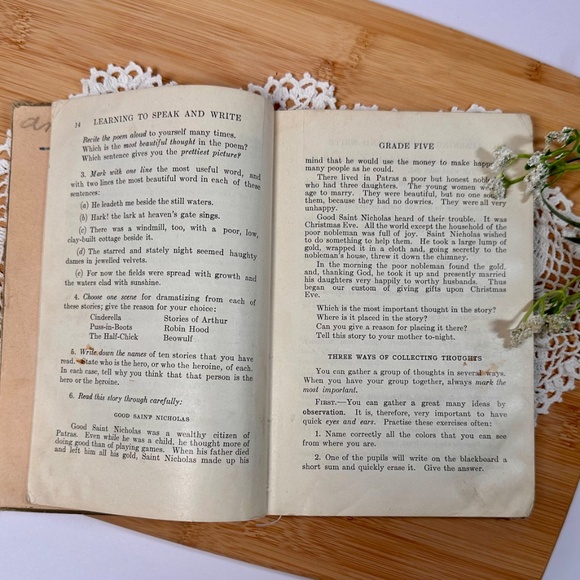 14 LEARNING TO SPEAK AND WRITE
Recite the poem aloud to yourself many times.
Which is the most beautiful thought in the poem?
Which sentence gives you the prettiest picture?
3. Mark with one line the most useful word, and
with two lines the most beautiful word in each of these
sentences:
(a) He leadeth me beside the still waters.
(b) Hark! the lark at heaven's gate sings.
(c) There was a windmill, too, with a poor, low,
clay-built cottage beside it.
(d) The starred and stately night seemed haughty
dames in jewelled velvets.
(e) For now the fields were spread with growth and
the waters clad with sunshine.
4. Choose one scene for dramatizing from each of
these stories; give the reason for your choice:
Cinderella Stories of Arthur
Puss-in-Boots Robin Hood
The Half-Chick Beowulf
5. Write down the names of ten stories that you have
read. State who is the hero, or who the heroine, of each.
In each case, tell why you think that that person is the
hero or the heroine.
6. Read this story through carefully:
GOOD SAINT NICHOLAS
Good Saint Nicholas was a wealthy citizen of
Patras. Even while he was a child, he thought more of
doing good than of playing games. When his father died
and left him all his gold, Saint Nicholas made up his
GRADE FIVE
mind that he would use the money to make happy
many people as he could.
There lived in Patras a poor but honest
who had three daughters. The young women were
age to marry. They were beautiful, but no one
them, because they had no dowries. They were all very
unhappy.
Good Saint Nicholas heard of their trouble. It was
Christmas Eve. All the world except the household of the
poor nobleman was full of joy. Saint Nicholas wished
to do something to help them. He took a large lump of
gold, wrapped it in a cloth and, going secretly to the
nobleman's house, threw it down the chimney.
In the morning the poor nobleman found the gold,
and, thanking God, he took it up and presently married
his daughters very happily to worthy husbands. Thus
began our custom of giving gifts upon Christmas
Eve.
Which is the most important thought in the story?
Where is it placed in the story?
Can you give a reason for placing it there?
Tell this story to your mother to-night.
THREE WAYS OF COLLECTING THOUGHTS
You can gather a group of thoughts in several ways.
When you have your group together, always mark the
most important.
FIRST.—You can gather a great many ideas by
observation. It is, therefore, very important to have
quick eyes and ears. Practise these exercises often:
1. Name correctly all the colors that you can see
from where you are.
2. One of the pupils will write on the blackboard a
short sum and quickly erase it. Give the answer.